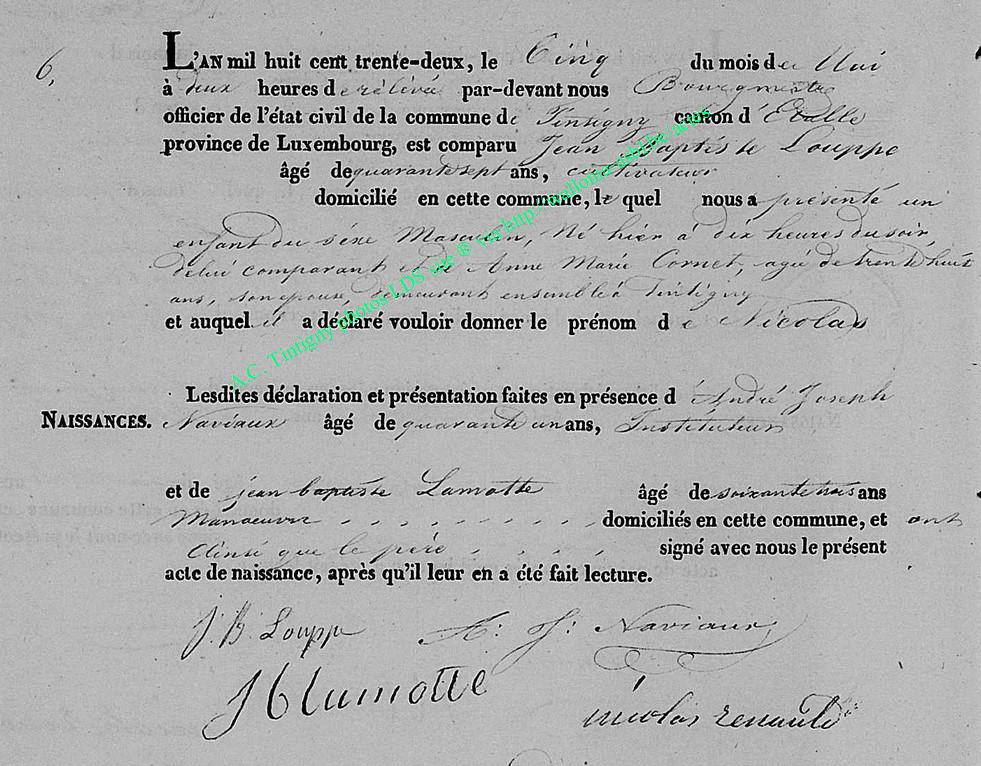 6,
L'AN mil huit cent trente-deux, le Cinq du mois de Mai
à deux heures de rélevée par-devant nous Bourgmestre
officier de l'état civil de la commune de Tintigny canton d'Etalle
province de Luxembourg, est comparu Jean Baptiste Louppe
âgé de quarante sept ans, cultivateur
domicilié en cette commune, le quel nous a présenté un
enfant du séxe Masculin, Né hier à dix heures du soir,
de lui comparant et de Anne Marie Cornet, agée de trente huit
ans, son épouse, demeurant ensemble à Tintigny
et auquel il a déclaré vouloir donner le prénom de Nicolas
Lesdites déclaration et présentation faites en présence d'André Joseph
NAISSANCES. Naviaux âgé de quarante un ans, Instituteur
et de jean baptiste Lamotte âgé de soixante trois ans
Manoeuvre domiciliés en cette commune, et ont
Ainsi que le père signé avec nous le présent
acte de naissance, après qu'il leur en a été fait lecture.
J. B. Louppe A: J: Naviaux
J b lamotte
nicolas renauld
A.C. Tintigny photos LDS site ® via http://wallonia-asbl.be/actes